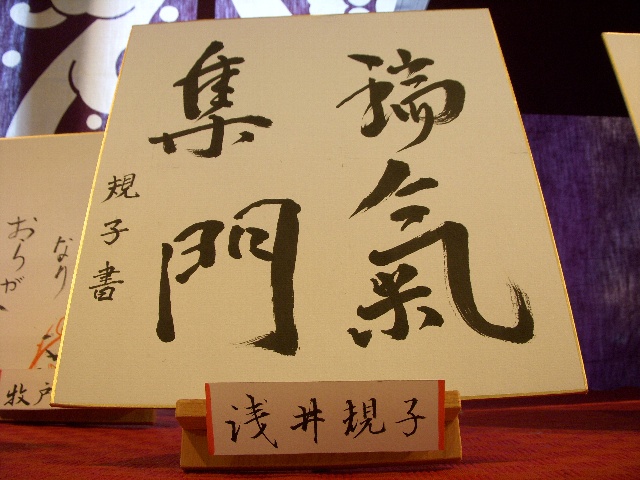 瑞氣
集門
規子書
浅井規子
なり
おらが
牧戸